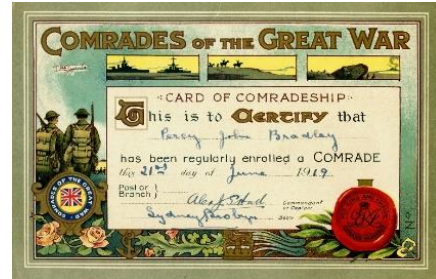 COMRADES OF THE GREAT WAR
"CARD OF COMRADESHIP"
This is to CERTIFY that
Percy John Bradley
has been regularly enrolled a COMRADE
this 21st day of June 1919
Post or
Branch
Commandant
or Captain
Secy
COMRADES OF THE GREAT WAR
No